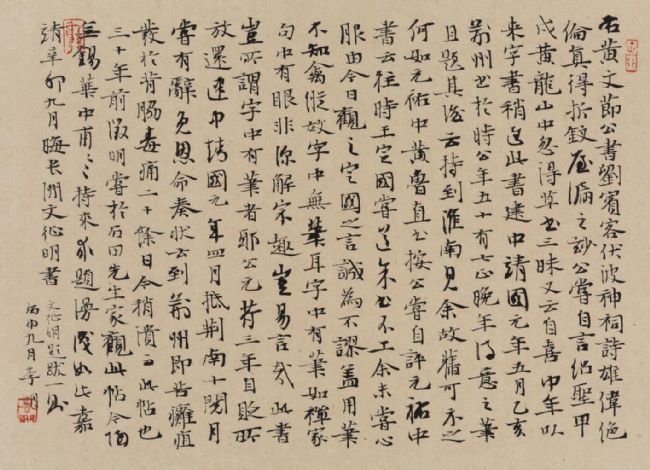 右黃文節公書劉賓客伏波神祠詩雄偉絕
倫真得折釵屋漏之妙公嘗自言紹聖甲
戌黃龍山中忽得草書三昧又云自喜中年以
来字書稍進此書建中靖國元年五月乙亥
荊州書於時公年五十有七正晚年得意之筆
且題其後云持到淮南見余故舊可示之
何如元祐中黃魯直書按公嘗自評元祐中
書云往時王定國嘗道余書不工余未嘗心
服由今日觀之定國之言誠為不謬蓋用筆
不知禽縱故字中無筆耳字中有筆如禪家
句中有眼非深解宗趣豈易言哉此書
豈所謂字中有筆者耶公元符三年自貶所
放還建中靖國元年四月抵荊南十閱月
嘗有辭免恩命奏狀云到荊州即苦癰疽
發於背腸毒痛二十餘日今稍潰而此帖也
三十年前徵明嘗於石田先生家觀此帖今歸
無錫華中甫〻〻持來求題漫識如此嘉
靖辛卯九月晦長洲文徵明書
文徵明題跋一則
丙申九月李